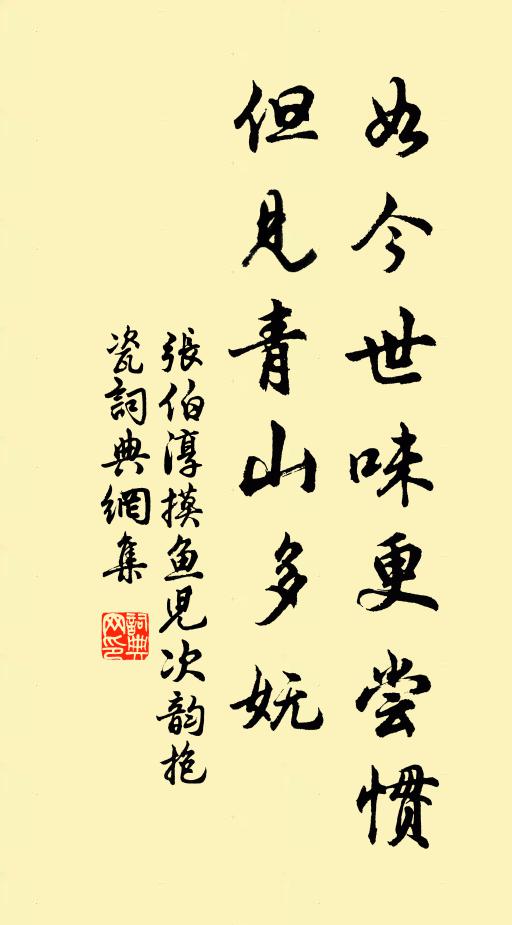 如今世味更尝惯
但见青山多妩
張伯淳摸鱼児次韵抱
瓷詞典網集
詞典网印